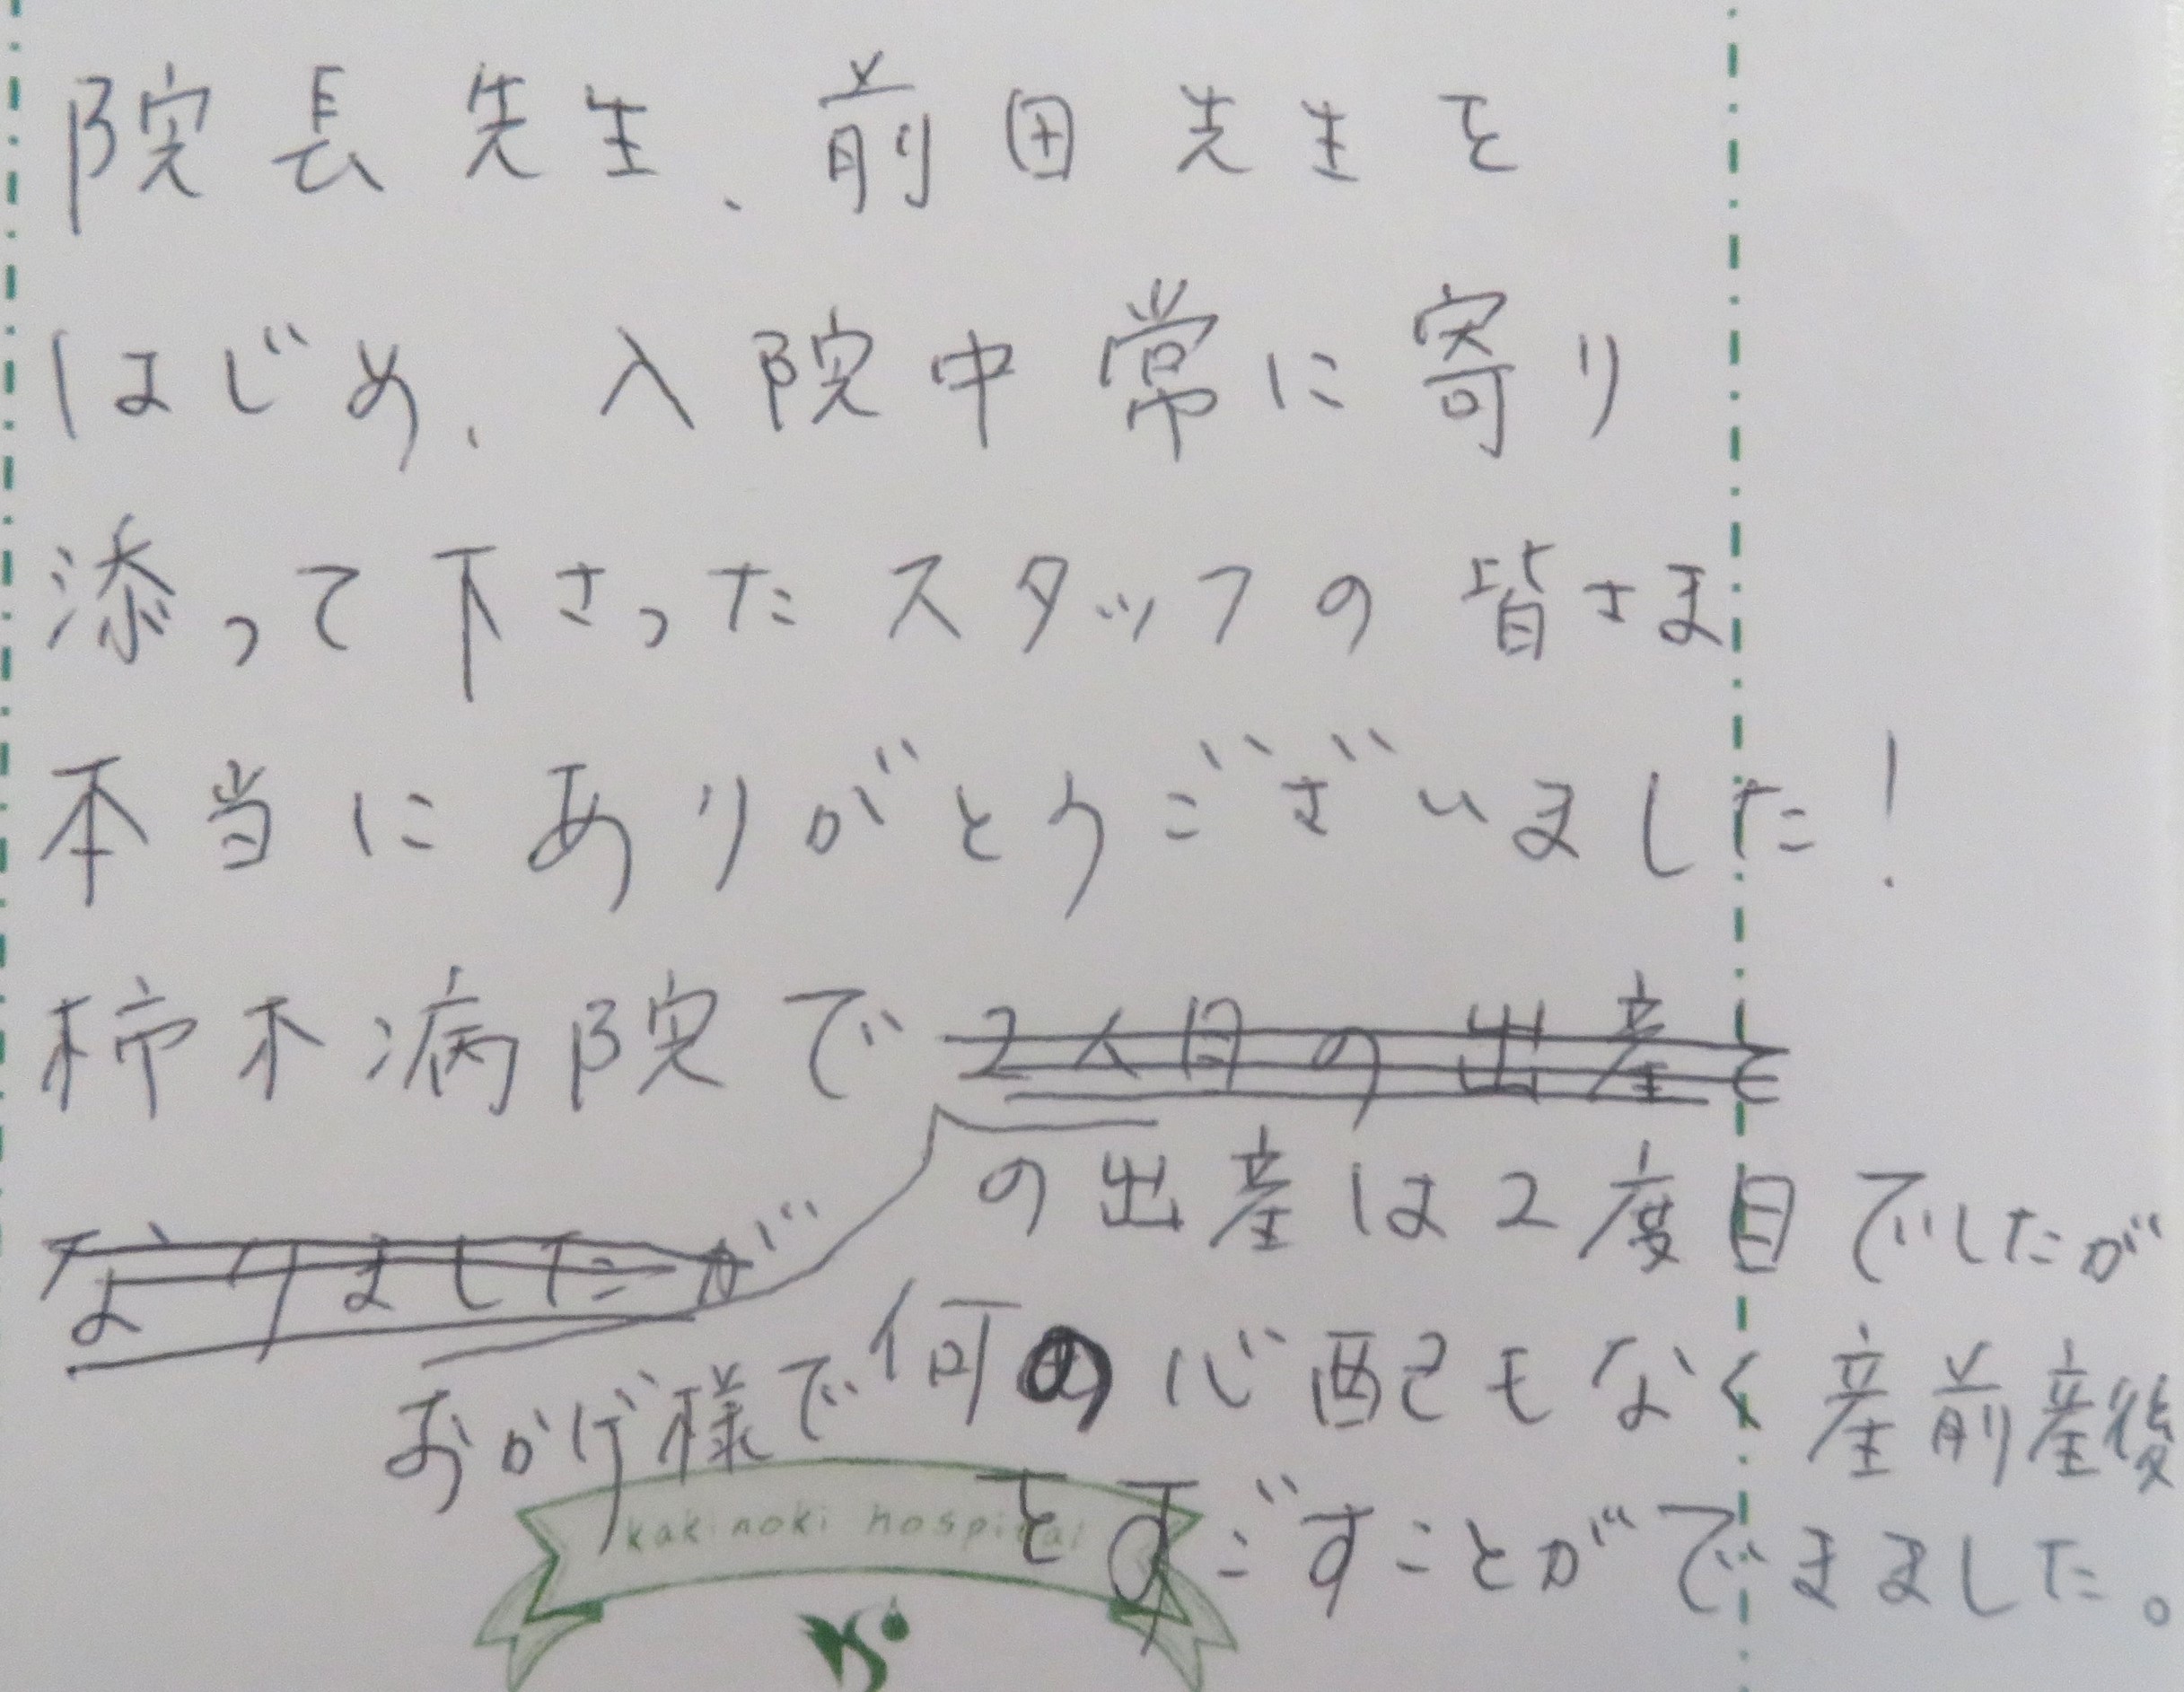 院長先生、前田先生を
はじめ、入院中常に寄り
添って下さったスタッフの皆さま
本当にありがとうございました！
柿木病院で2人目の出産と
なりましたが
の出産は2度目でしたが
おかげ様で何の心配もなく産前産後
をすごすことができました。
kakinoki hospital